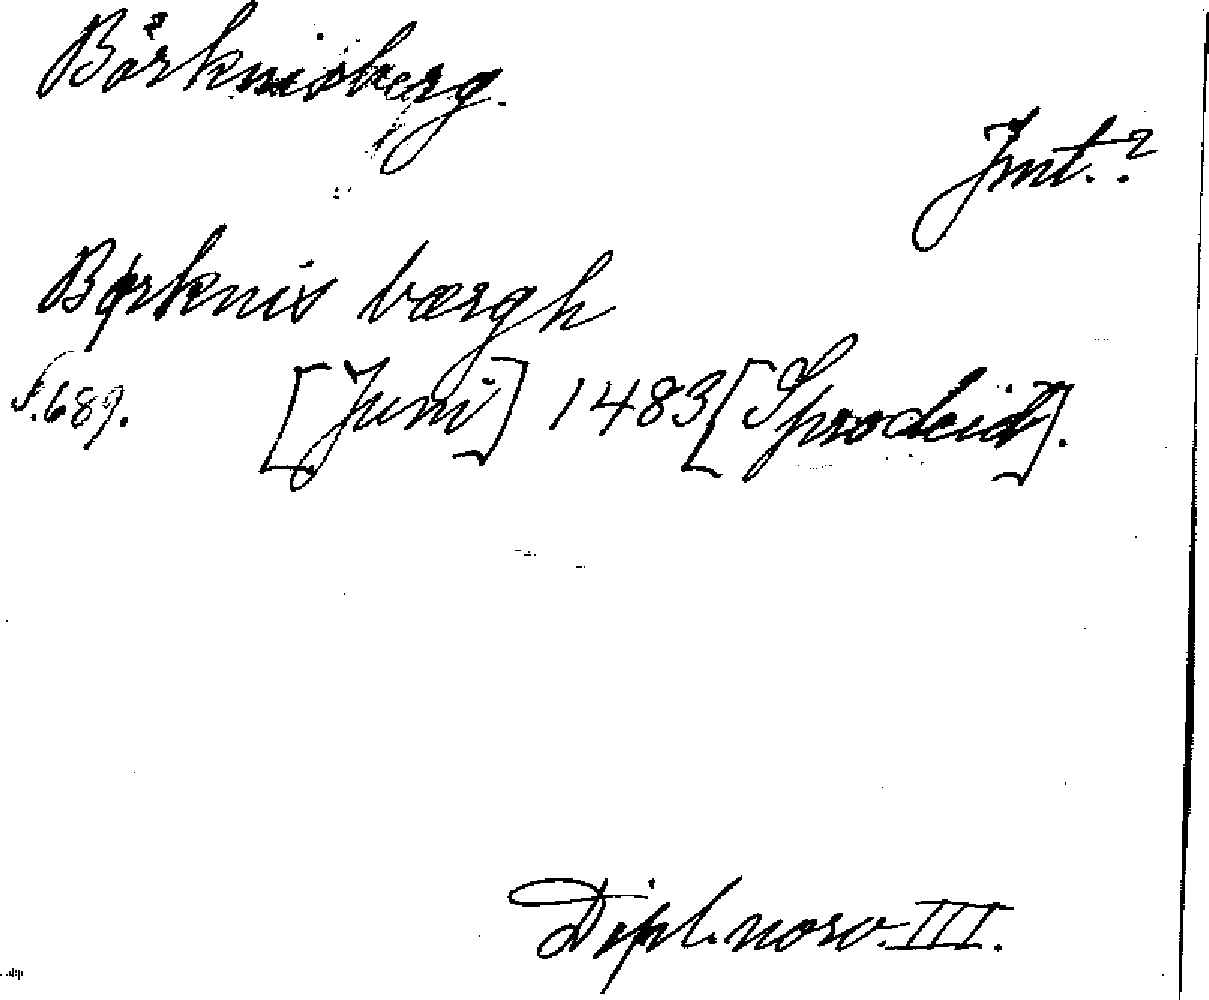 Börknisberg.
Jmt.?
Børknis bærgh
s. 689. [Juni] 1483 [Sprodeidt].
Dipl. norv. III.